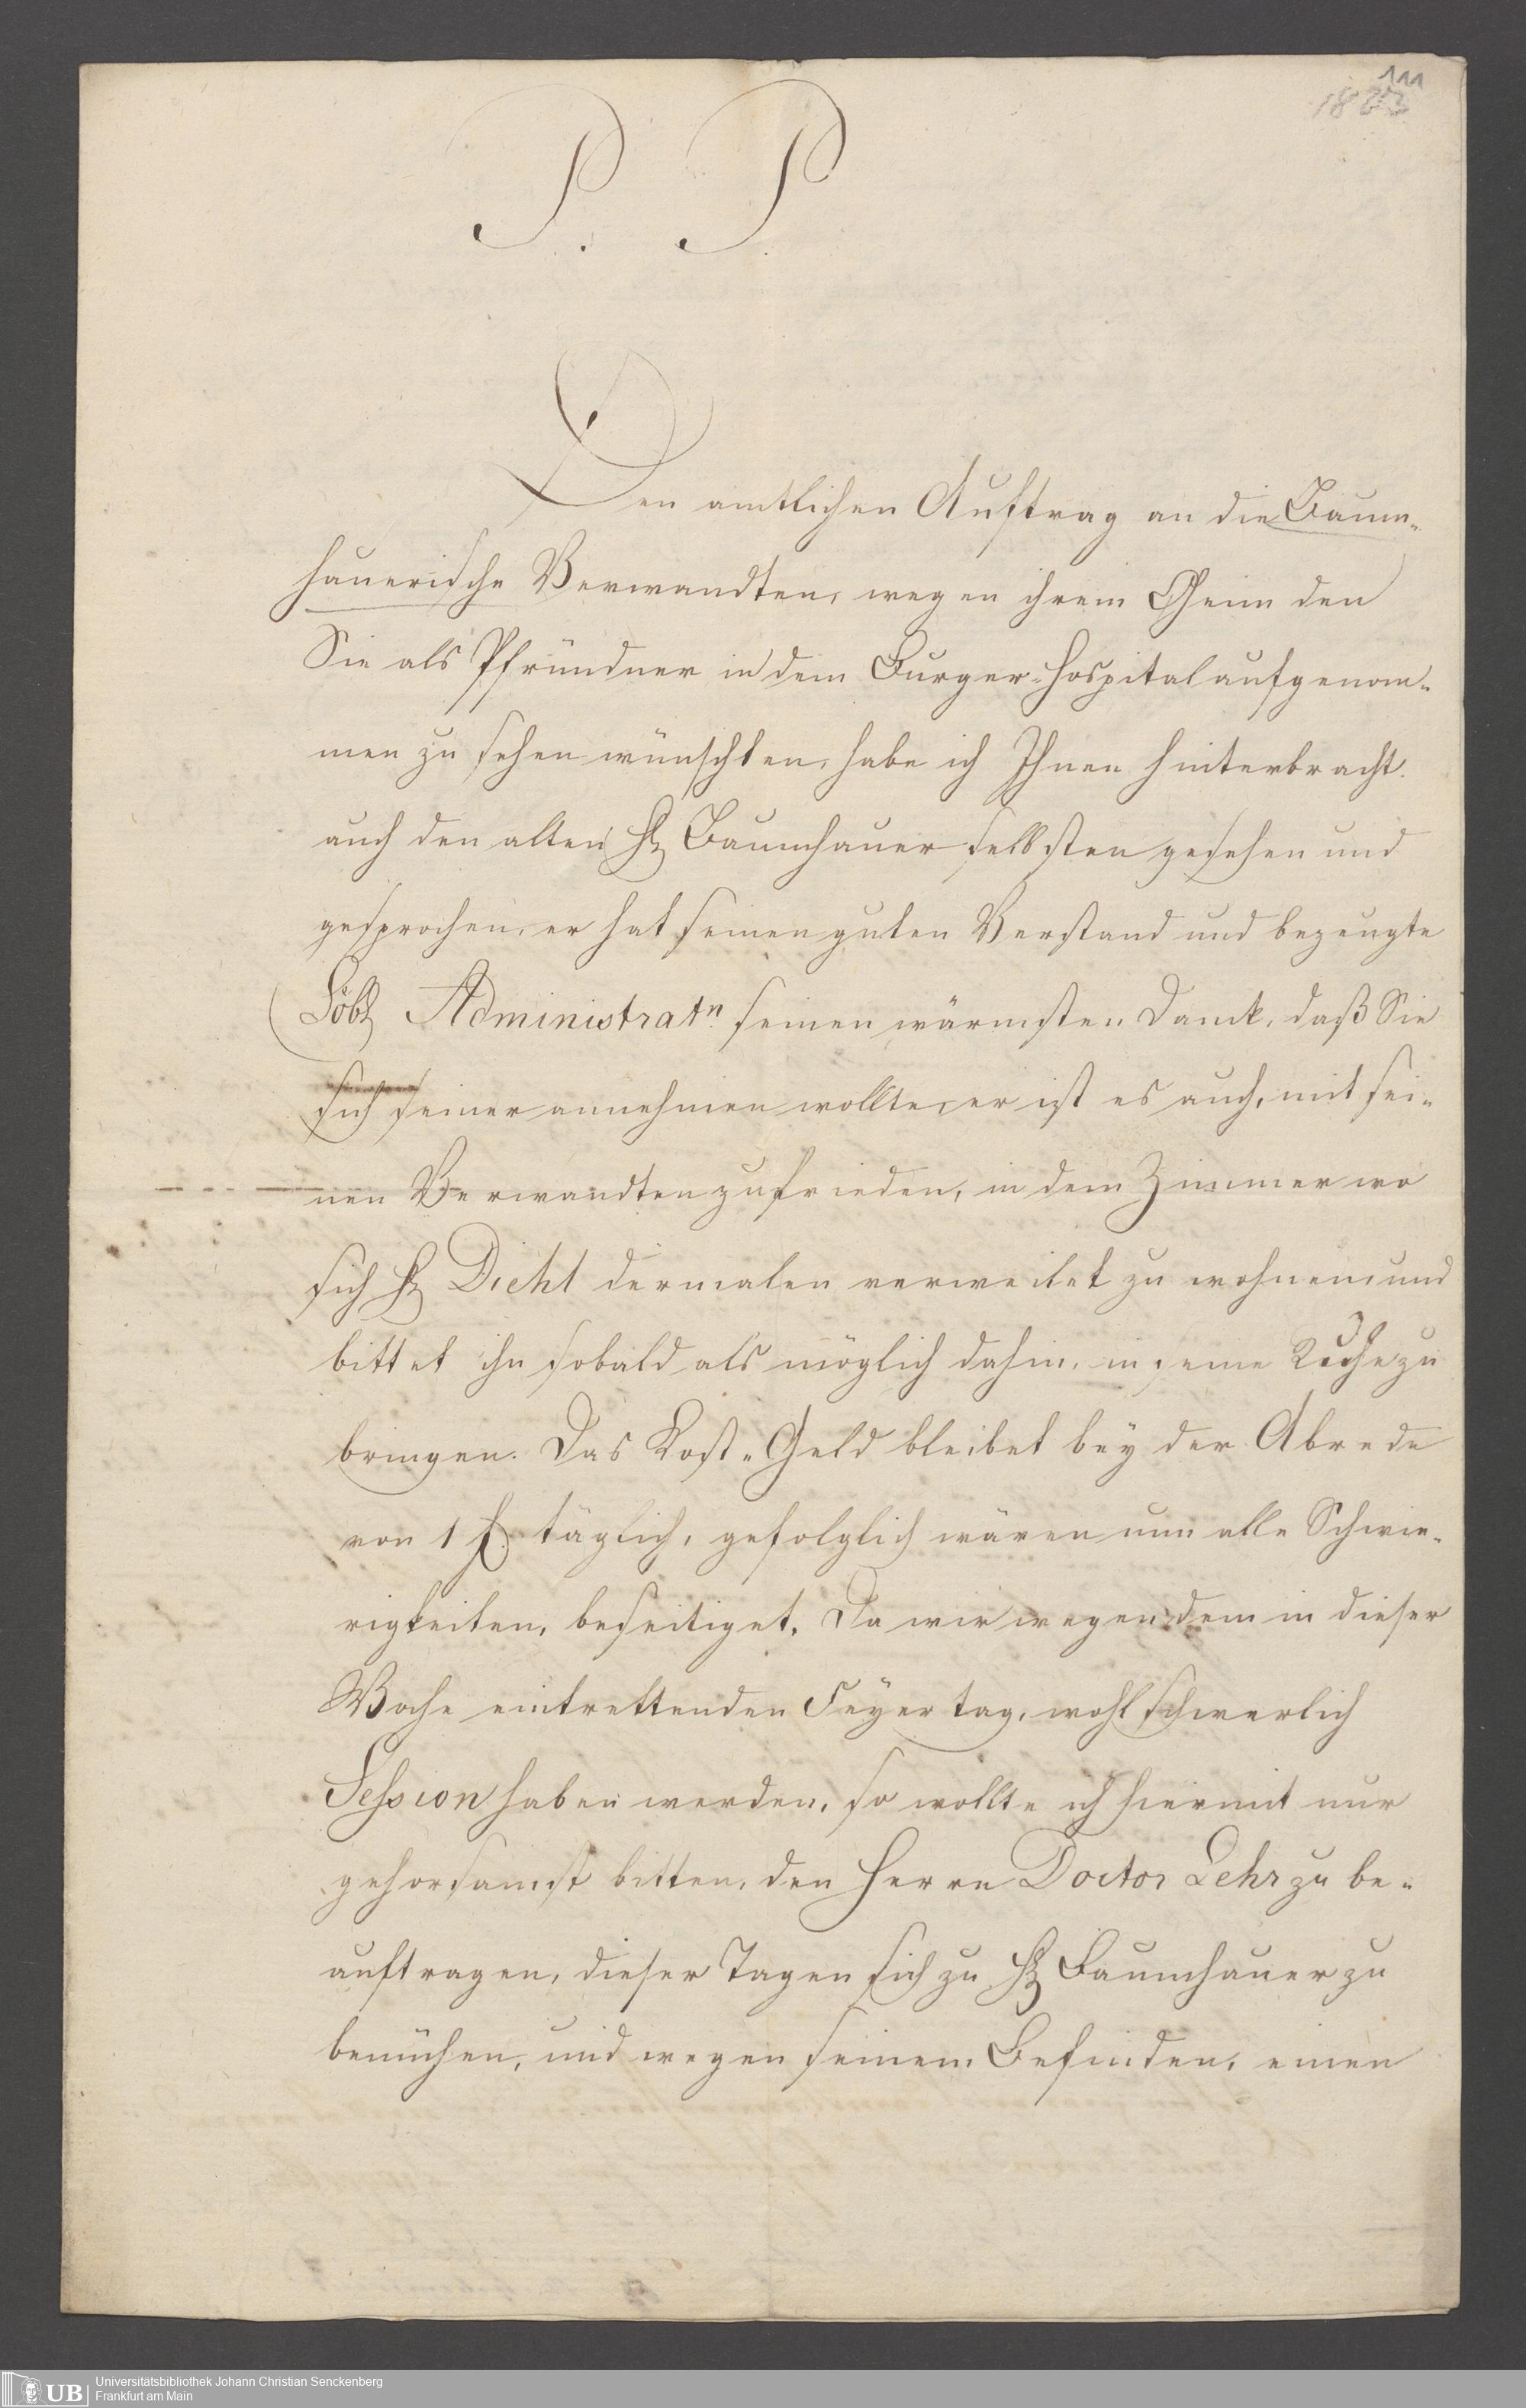 111
1823
P. P.
Den amtlichen Auftrag an die Baum-
hauerische Verwandten, wegen ihrem Oheim den
Sie als Pfründner in dem Burger-Hospital aufgenom-
men zu sehen wünschten, habe ich Ihnen hinterbracht.
auch den alten H. Baumhauer selbsten gesehen und
gesprochen, er hat seinen guten Verstand und bezeugte
Löbl. Administratn. seinen wärmsten Danck, daß Sie
sich seiner annehmen wollte, er ist es auch, mit sei-
nen Verwandten zufrieden, in dem Zimmer wo
sich H. Diehl dermalen verweilet zu wohnen, und
bittet ihn sobald als möglich dahin, in seine Ruhe zu
bringen. Das Kost-Geld bleibet bey der Abrede
von 1 f. täglich, gefolglich wären nun alle Schwie-
rigkeiten, beseitiget. Da wir wegen dem in dieser
Woche eintrettenden Feyertag, wohl schwerlich
Session haben werden, so wollte ich hiermit nur
gehorsamst bitten, den Herrn Doctor Lehr zu be-
auftragen, dieser Tagen sich zu H. Baumhauer zu
bemühen, und wegen seinem Befinden, einen
UB
Universitätsbibliothek Johann Christian Senckenberg
Frankfurt am Main